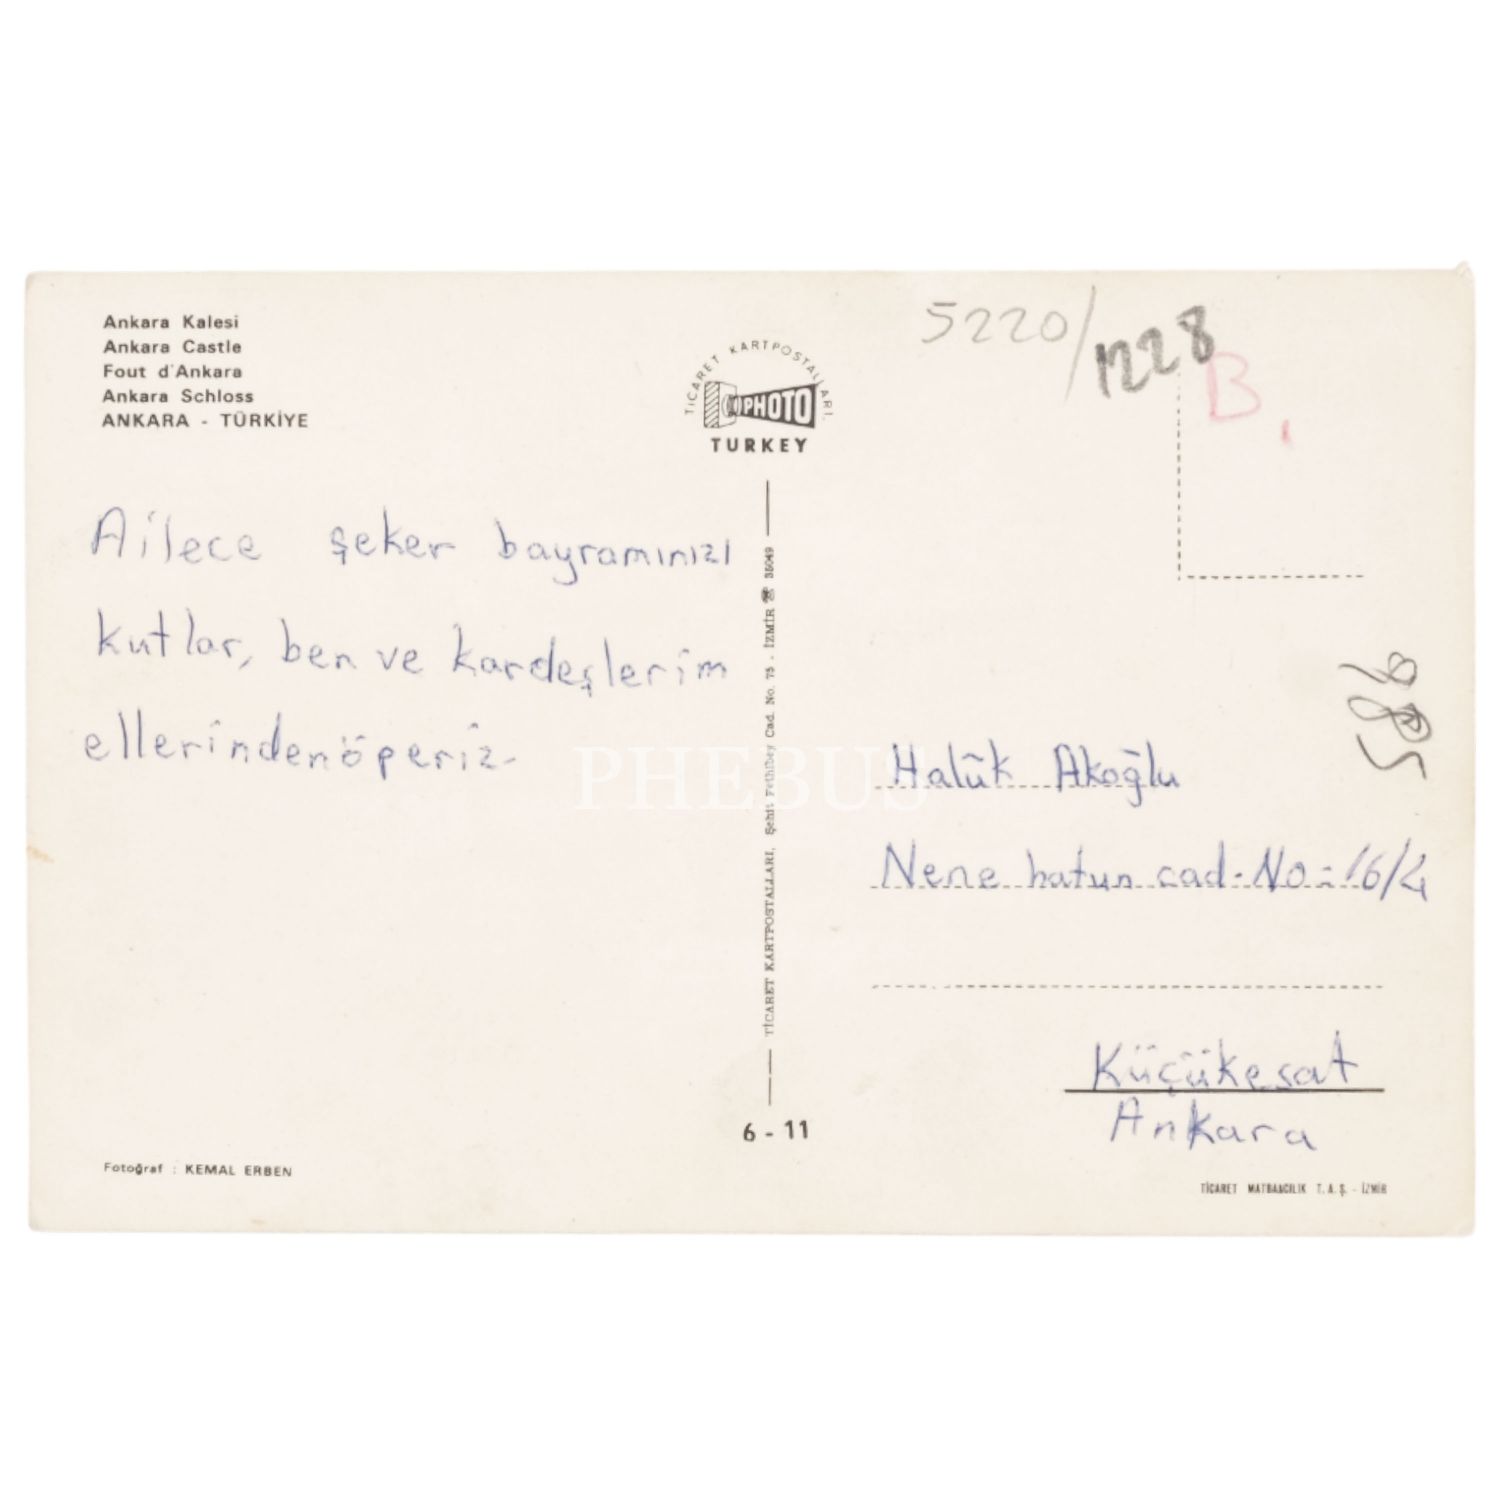 Ankara Kalesi
Ankara Castle
Fout d'Ankara
Ankara Schloss
ANKARA - TÜRKİYE
TİCARET KARTPOSTALLARI.
PHOTO
TURKEY
5220/1228
B.
Ailece şeker bayramınızı
kutlar, ben ve kardeşlerim
ellerinden öperiz.
TİCARET KARTPOSTALLARI, Şehit Fethibey Cad. No. 75 . İZMİR ☎ 35049
PHEBUS
Halûk Akoğlu
Nene hatun cad. No: 16/4
Küçükesat
Ankara
6 - 11
Fotoğraf : KEMAL ERBEN
TİCARET MATBAACILIK T. A. Ş. - İZMİR